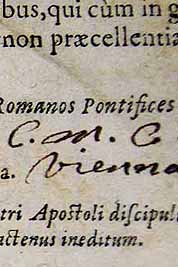 bus, qui cùm in g
non præcellentia
Romanos Pontifices
C. M. C
a. Vienna
tri Apostoli discipul
actenus ineditum.